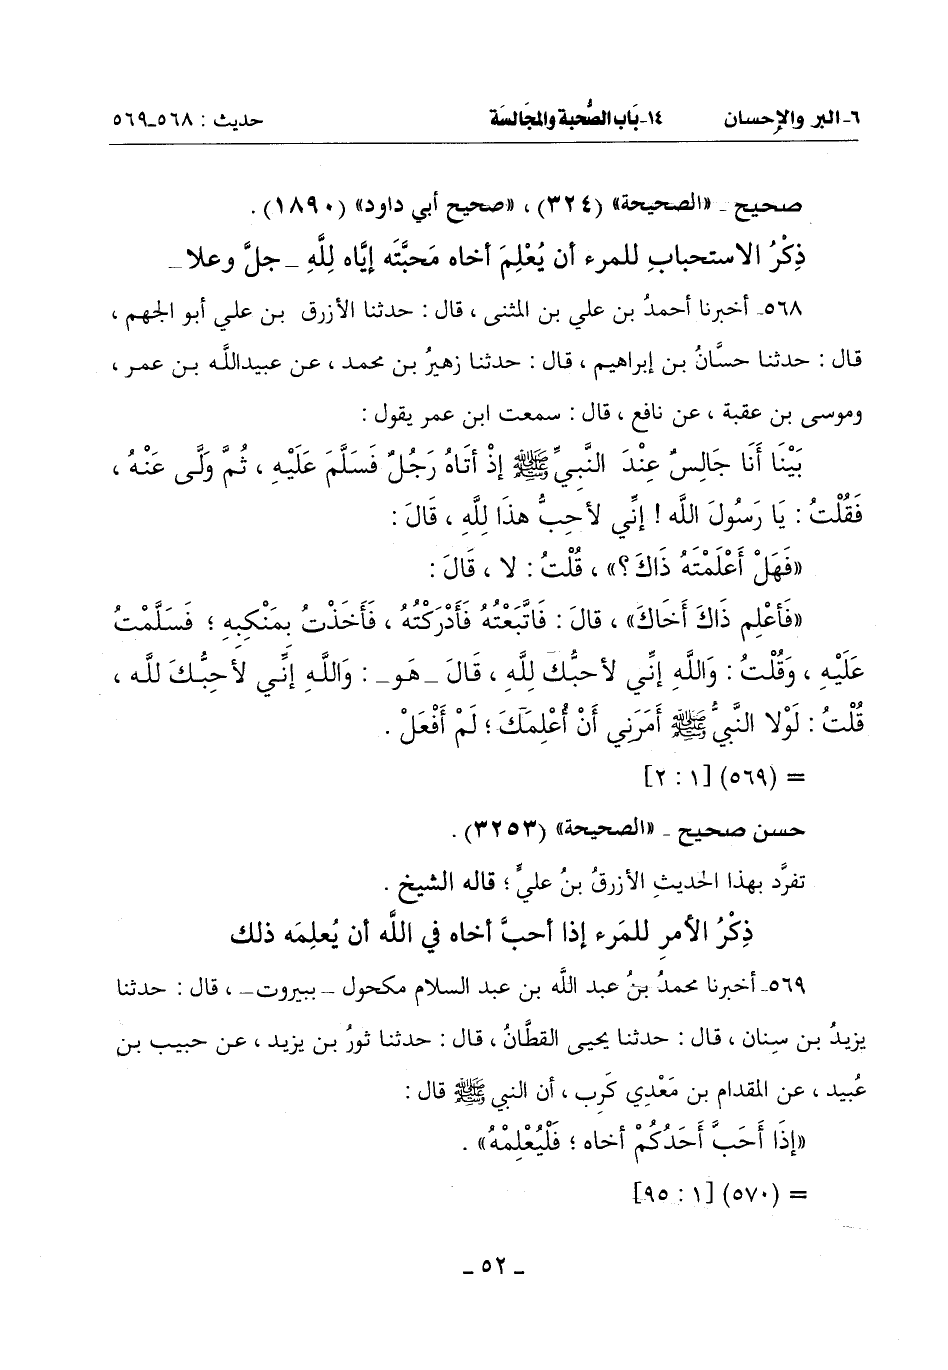 ٦- البر والإحسان ١٤- بَاب الصُّحبة والمجَالسَة حديث : ٥٦٨-٥٦٩
صحيح - «الصحيحة» (٣٢٤) ، «صحيح أبي داود» (١٨٩٠) .
ذِكْرُ الاستحبابِ للمرء أن يُعْلِمَ أخاه مَحبَّتَه إيَّاه لِلَّهِ - جلَّ وعلا -
٥٦٨- أخبرنا أحمدُ بن علي بن المثنى ، قال : حدثنا الأزرق بن علي أبو الجهم ،
قال : حدثنا حسَّانُ بن إبراهيم ، قال : حدثنا زهيرُ بن محمد ، عن عبيدالله بن عمر ،
وموسى بن عقبة ، عن نافع ، قال : سمعت ابن عمر يقول :
بَيْنَا أَنَا جَالِسٌ عِنْدَ النَّبِيِّ ﷺ إِذْ أتَاهُ رَجُلٌ فَسَلَّمَ عَلَيْهِ ، ثُمَّ وَلَّى عَنْهُ ،
فَقُلْتُ : يَا رَسُولَ الله ! إنِّي لأحِبُّ هذَا لِلَّهِ ، قَالَ :
«فَهَلْ أَعْلَمْتَهُ ذَاكَ ؟» ، قُلْتُ : لا ، قَالَ :
«فَأعْلِم ذَاكَ أَخَاكَ» ، قالَ : فَاتَّبَعْتُهُ فَأَدْرَكْتُهُ ، فَأَخَذْتُ بِمَنْكِبِهِ ؛ فَسَلَّمْتُ
عَلَيْهِ ، وَقُلْتُ : وَاللَّهِ إنِّي لأحبُّكَ لِلَّهِ ، قَالَ - هو - : وَاللَّهِ إنِّي لأحِبُّكَ لله ،
قُلْتُ : لَوْلا النَّبيُّ ﷺ أَمَرَنِي أَنْ أُعْلِمَكَ ؛ لَمْ أَفْعَلْ .
= (٥٦٩) [١ : ٢]
حسن صحيح - «الصحيحة» (٣٢٥٣) .
تفرَّد بهذا الحديثِ الأزرقُ بنُ عليٍّ ؛ قاله الشيخ .
ذِكْرُ الأمرِ للمَرء إذا أحبَّ أخاه في اللَّه أن يُعلِمَه ذلك
٥٦٩- أخبرنا محمدُ بنُ عبد الله بن عبد السلام مكحول - ببيروت - ، قال : حدثنا
يزيدُ بن سِنان ، قال : حدثنا يحيى القطَّانُ ، قال : حدثنا ثورُ بن يزيد ، عن حبيب بن
عُبيد ، عن المقدام بن مَعْدِي كَرِب ، أن النبي ﷺ قال :
«إذَا أَحَبَّ أَحَدُكُمْ أخاه ؛ فَلْيُعْلِمْهُ» .
= (٥٧٠) [١ : ٩٥]
- ٥٢ -